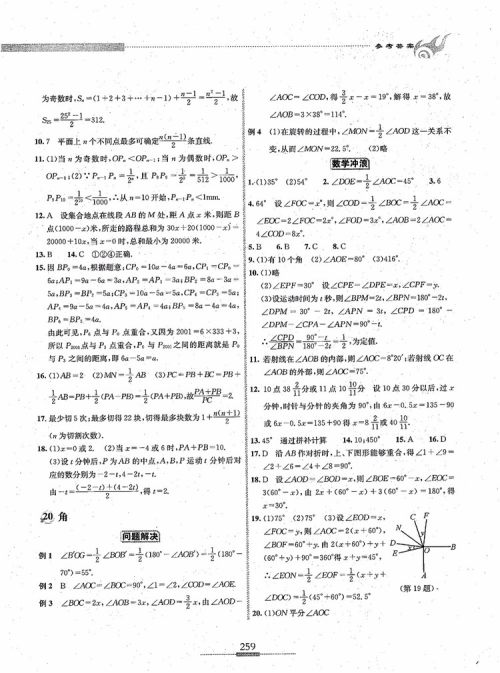 参考答案
为奇数时,Sₙ=(1+2+3+…+n-1)+\frac{n-1}{2}=\frac{n²-1}{2},故
S₂₅=\frac{25²-1}{2}=312.
10.7 平面上n个不同点最多可确定\frac{n(n-1)}{2}条直线.
11.(1)当n为奇数时,OPₙ<OPₙ₋₁;当n为偶数时,OPₙ>
12.A 设集合地点在线段AB的M处,距A点x米,则距B
点(1000-x)米,所走的路程总和为30x+20(1000-x)=
20000+10x,当x=0时,总和最小为20000米.
13.B 14.C ①②④正确.
15.因BP₀=4a,根据题意:CP₀=10a-4a=6a,CP₁=CP₀=
6a;AP₁=9a-6a=3a,AP₂=AP₁=3a;BP₂=8a-3a=
5a,BP₃=BP₂=5a;CP₃=10a-5a=5a,CP₄=CP₃=5a;
AP₄=9a-5a=4a,AP₅=AP₄=4a;BP₅=8a-4a=4a,
BP₆=BP₅=4a.
由此可见,P₆点与P₀点重合,又因为2001=6×333+3,
所以P₂₀₀₁点与P₃点重合,P₁与P₂₀₀₁之间的距离就是P₁
与P₃之间的距离,即6a-5a=a.
16.(1)AB=2 (2)MN=\frac{1}{2}AB (3)PC=PB+BC=PB+
\frac{1}{2}AB=PB+\frac{1}{2}(PA-PB)=\frac{1}{2}(PA+PB),故\frac{PA+PB}{PC}=2.
17.最少切5次;最多切得22块,切得最多块数为1+\frac{n(n+1)}{2}
(n为切割次数).
18.(1)x=0或2. (2)当x=-4或6时,PA+PB=10.
(3)设t分钟后,P为AB的中点,A、B、P运动t分钟后对
应的数分别为-2-t,4-2t,-t.
由-t=\frac{(-2-t)+(4-2t)}{2},得t=2.
20 角
问题解决
例1 ∠B′OG=\frac{1}{2}∠BOB′=\frac{1}{2}(180°-∠AOB′)=\frac{1}{2}(180°-
70°)=55°.
例2 B ∠AOC=∠BOC=90°,∠1=∠2,∠COD=∠AOE.
例3 ∠BOC=2x,∠AOB=3x,∠AOD=\frac{3}{2}x,由∠AOD-
∠AOC=∠COD,得\frac{3}{2}x-x=19°,解得x=38°,故
∠AOB=3×38°=114°.
例4 (1)在旋转的过程中,∠MON=\frac{1}{2}∠AOD这一关系不
变,从而∠MON=22.5°. (2)略
数学冲浪
1.(1)35° (2)54° 2.∠DOE=\frac{1}{2}∠AOC=45° 3.6
4.64° 设∠FOC=x°,则∠COD=\frac{1}{2}∠BOC=\frac{1}{2}∠AOC=
∠EOC=2∠FOC=2x°,∠FOD=3x°,∠AOB=2∠AOC=
4∠COD=8x°.
5.B 6.B 7.C 8.C
9.(1)有10个角 (2)∠AOE=80° (3)416°.
10.(1)略
(2)∠EPF=30° 设∠CPE=∠DPE=x,∠CPF=y.
(3)设运动时间为t秒,则∠BPM=2t,∠BPN=180°-2t,
∠DPM=30°-2t,∠APN=3t,∠CPD=180°-
∠DPM-∠CPA-∠APN=90°-t.
∴\frac{∠CPD}{∠BPN}=\frac{90°-t}{180°-2t}=\frac{1}{2},为定值.
11.若射线在∠AOB的内部,则∠AOC=8°20′;若射线OC在
∠AOB的外部,则∠AOC=75°.
12.10点38\frac{2}{11}分或11点10\frac{10}{11}分 设10点30分以后,过x
分钟,时针与分针的夹角为90°,由6x-0.5x=135-90
或6x-0.5x=135+90得x=8\frac{2}{11}或40\frac{10}{11}.
13.45° 通过拼补计算 14.10;450° 15.A 16.D
17.D 沿AB作对折时,上、下图形能够重合,得∠1+∠9=
∠2+∠6=∠4+∠8=90°.
18.D 设∠AOD-∠BOD=x,则∠BOE=60°-x,∠EOC=
3(60°-x),由2x+(60°-x)+3(60°-x)=180°,得
x=30°.
19.(1)75° (2)75° (3)设∠EOD=x,
∠FOC=y,则∠AOC=2(x+60°),
∠BOF=60°+y.由2(x+60°)+y+
(60°+y)+90°=360°得x+y=45°,
∴∠EON=\frac{1}{2}∠EOF=\frac{1}{2}(x+y+
∠DOC)=\frac{1}{2}(45°+60°)=52.5°
C F
N
D
E O B
A
(第19题)
20.(1)ON平分∠AOC
259